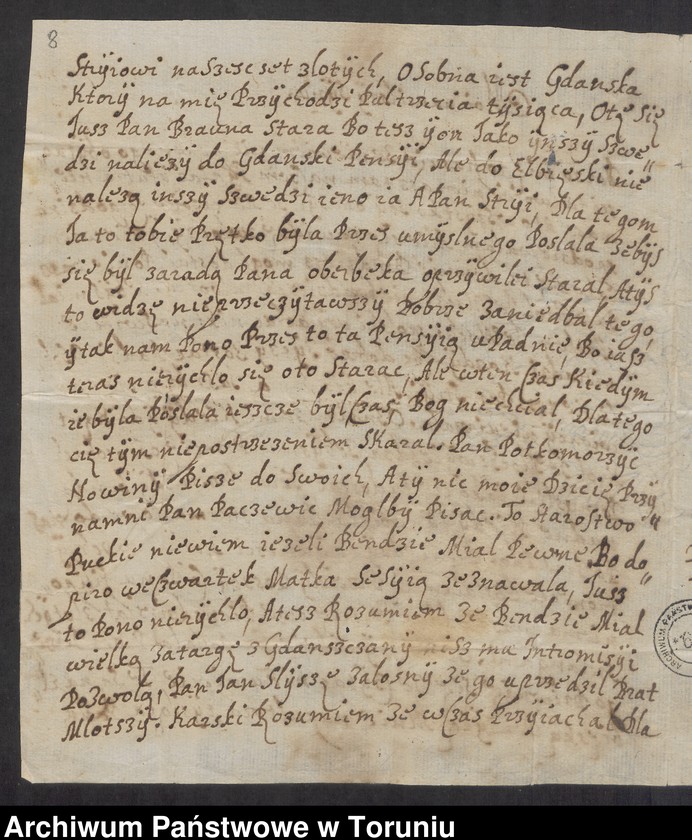 8
Stryiowi na Szesc set zlotych, Osobna iest Gdanska
Ktory na mię Przychodzi Pultrzecia tysiąca, Otę się
Iusz Pan Brauna Stara Bo tesz yon Iako ynszy Szwe"
dzi naliezy do Gdanski Pensyi, Ale do Elbięski nie
nalezą inszy Szwedzi ieno ia A Pan Stryi, Dla tegom
Ia to tobie Prętko byla Przes umyslnego Poslala Zebys
się byl zaradą Pana oberbeka oprzywilei Staral Atys
to widzę nieprzeczytawszy Dobrze Zaniedbal tego,
ytak nam Pono Przes to ta Pensyią upadnie, Bo iusz
teras nierychlo się oto Starac, Ale wten Czas Kiedym
ie byla Poslala ieszcze byl Czas, Bog niechcial, Dlatego
cię tym niepostrzezeniem Skaral. Pan Potkomorzyc
Nowiny Pisze do Swoich, Aty nic moie Dzicię Przy
namni Pan Paczewic Moglby Pisac. To Starostwo"
Puckie niewiem iezeli Bendzie Mial Pewne, Bo do"
piro we Czwartek Matka Sesyią Zeznawala, Iusz
to Pono nierychlo, Atesz Rozumiem Ze Bendzie Mial
wielką Zatargę z Gdanszczany nisz mu Intromisyi
Pozwolą, Pan Ian Slyszę Zalosny Ze go uprzedzil Brat
Mlotszy. Karski Rozumiem Ze w Czas Przyiachal Dla
ARCHIWUM PAŃSTW
Archiwum Państwowe w Toruniu